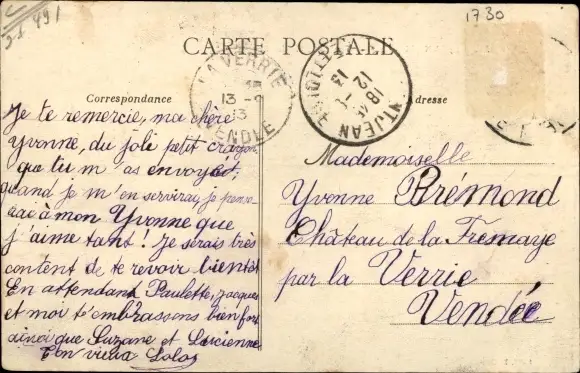 1730
CARTE POSTALE
LA VERRIE
13 - 9
13
VENDÉE
18
12
13
Correspondance
Adresse
Je te remercie, ma chère
Yvonne, du joli petit crayon,
que tu m'as envoyé,
quand je m'en servirai, je pense
rai à mon Yvonne que
j'aime tant ! Je serais très
content de te revoir bientôt
En attendant Paulette, Jacques
et moi t'embrassons bien fort
ainsi que Suzane et Lucienne
Ton vieux Lolo
Mademoiselle
Yvonne Brémond
Château de la Fremaye
par la Verrie
Vendée